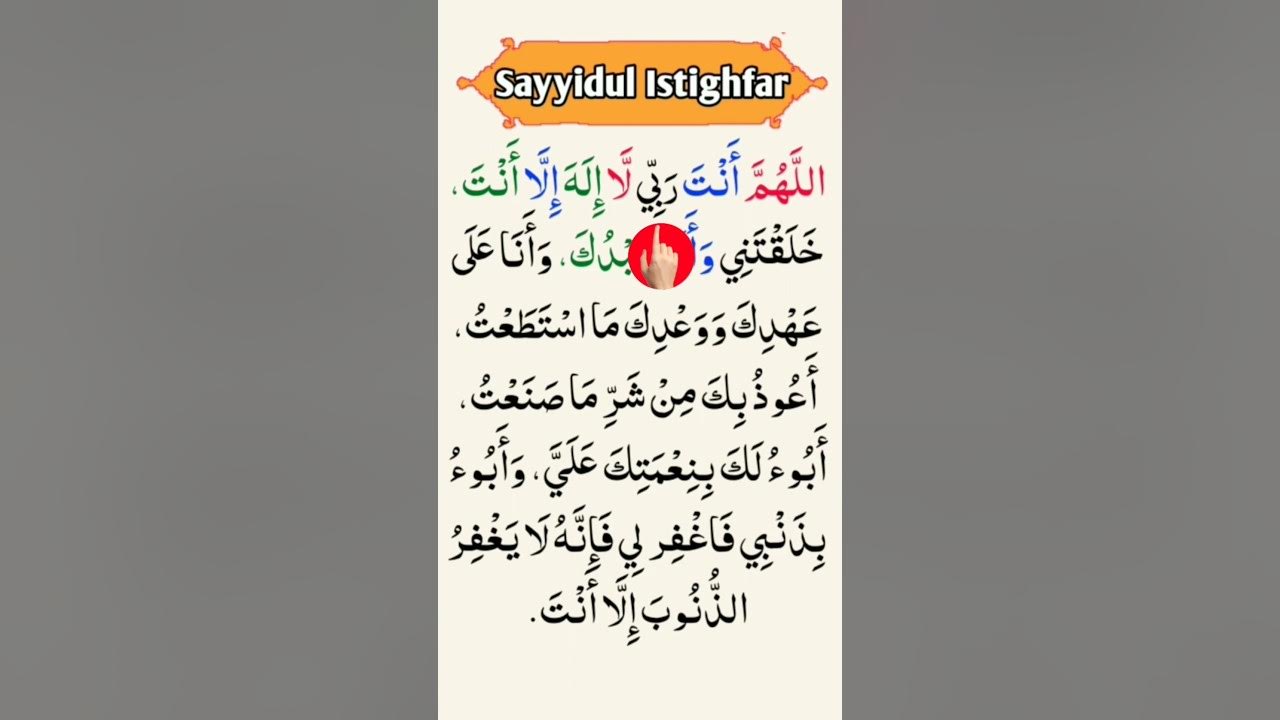 Sayyidul Istighfar
اللَّهُمَّ أَنْتَ رَبِّي لَّا إِلَهَ إِلَّا أَنْتَ،
خَلَقْتَنِي بْدُكَ، وَأَنَا عَلَى
عَهْدِكَ وَوَعْدِكَ مَا اسْتَطَعْتُ،
أَعُوذُ بِكَ مِنْ شَرِّ مَا صَنَعْتُ،
أَبُوءُ لَكَ بِنِعْمَتِكَ عَلَيَّ، وَأَبُوءُ
بِذَنْبِي فَاغْفِر لِي فَإِنَّهُ لَا يَغْفِرُ
الذُّنُوبَ إِلَّا أَنْتَ.